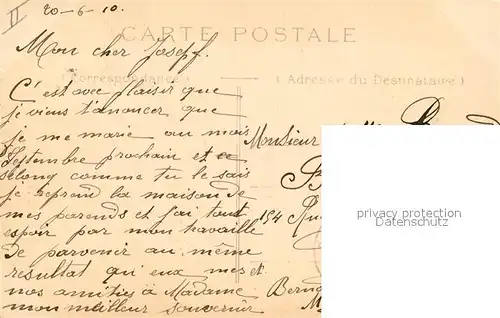 II
20-6-10.
CARTE POSTALE
Mon cher Josepf.
(Correspondance)
(Adresse du Destinataire)
C'est avec plaisir que
je viens t'anoncer que
je me marie au mois
Septembre prochain et ce
selong comme tu le sais
je reprend la maison de
mes parends et j'ai tout
espoir par mon travaille
de parvenir au même
resultat qu'eux mes et
nos amitiés à Madame
mon meilleur souvenir
Monsieur
154 Rue
privacy protection
Datenschutz